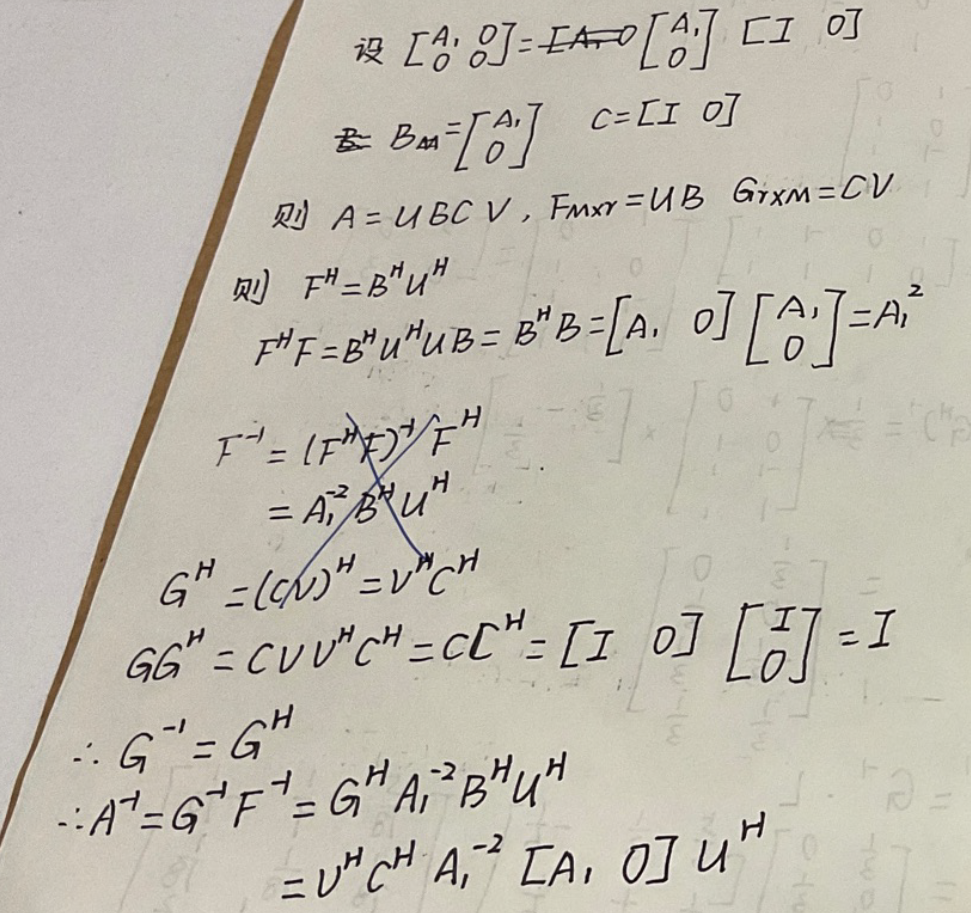 设 [A₁ 0 0 0] = [A₁ 0 [A₁ 0] [I 0]
B B = [A₁ 0] C = [I 0]
则 A = UBCV, F_{M×r} = UB G_{r×M} = CV
则 F^H = B^H U^H
F^H F = B^H U^H U B = B^H B = [A₁ 0] [A₁ 0] = A₁²
F⁻¹ = (F^H F)⁻¹ F^H
= A₁⁻² B^H U^H
G^H = (CV)^H = V^H C^H
GG^H = CVV^H C^H = CC^H = [I 0] [I 0] = I
∴ G⁻¹ = G^H
∴ A⁻¹ = G⁻¹ F⁻¹ = G^H A₁⁻² B^H U^H
= V^H C^H A₁⁻² [A₁ 0] U^H